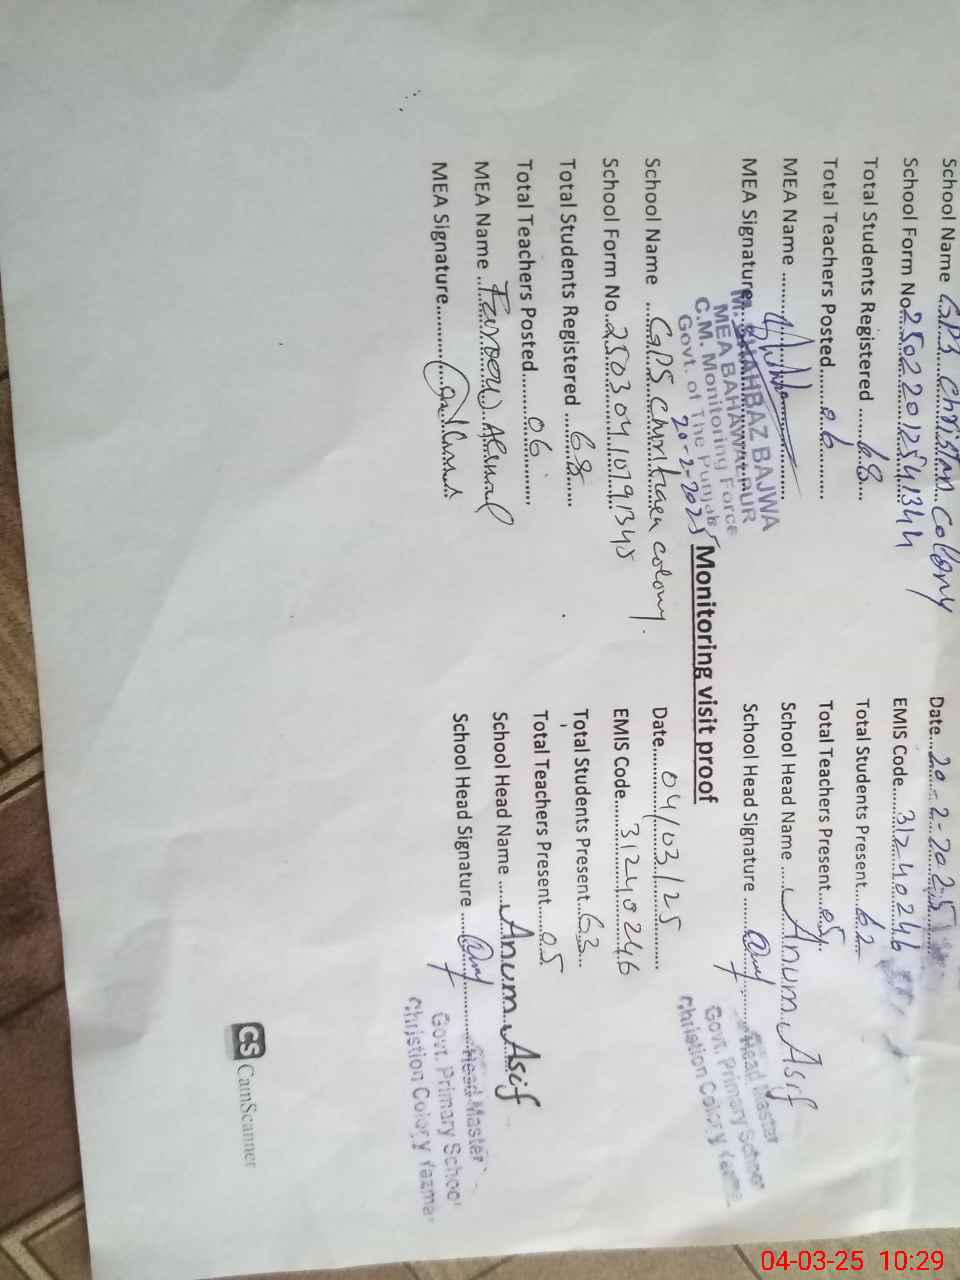 School Name GPS Christian Colony
Date 20-2-2025
School Form No 25022012541344
EMIS Code 31240246
Total Students Registered 68
Total Students Present 62
Total Teachers Posted 06
Total Teachers Present 05
MEA Name
School Head Name Anum Asif
MEA Signature
School Head Signature
M. SHAHBAZ BAJWA
MEA BAHAWALPUR
C.M. Monitoring Force
Govt. of The Punjab
20-2-2025
Head Master
Govt. Primary School
Christion Colony Yazman
Monitoring visit proof
School Name GPS Christian colony.
Date 04/03/25
School Form No 25030410791345
EMIS Code 31240246
Total Students Registered 68
Total Students Present 63
Total Teachers Posted 06
Total Teachers Present 05
MEA Name Farooq Ahmad
School Head Name Anum Asif
MEA Signature
School Head Signature
Head Master
Govt. Primary School
Christion Colony Yazman
CS CamScanner
04-03-25 10:29